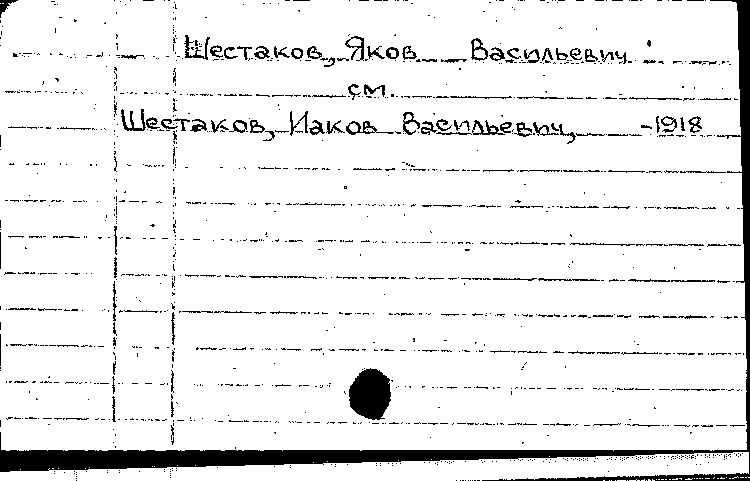 Шестаков, Яков Васильевич
см.
Шестаков, Иаков Васильевич, -1918